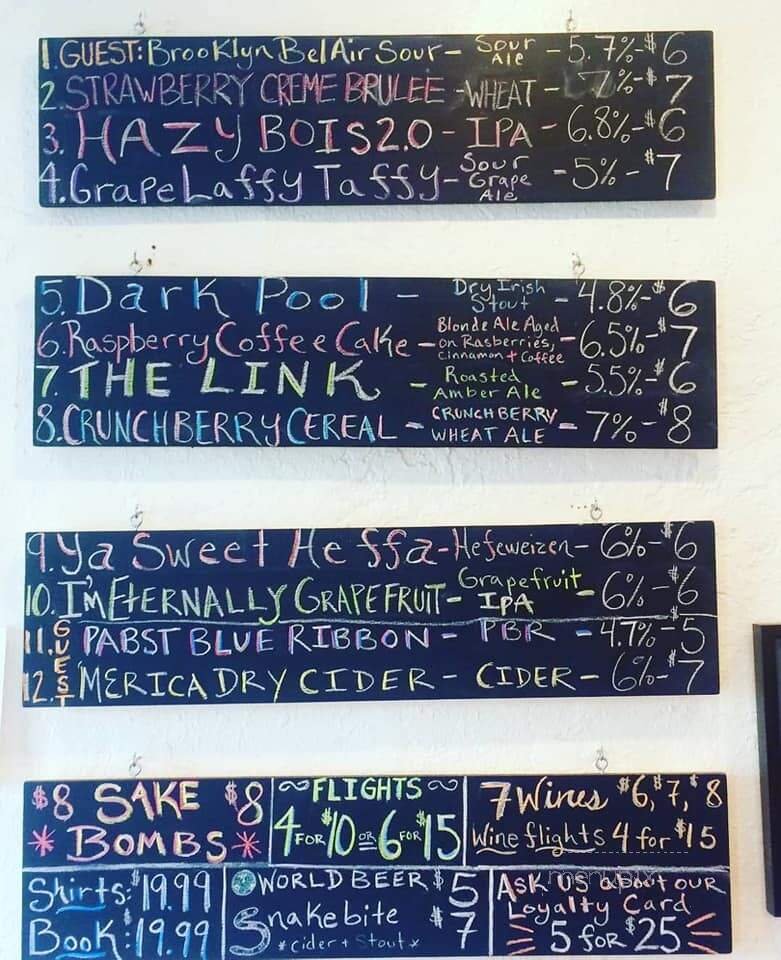 1. GUEST: Brooklyn Bel Air Sour - Sour Ale - 5.7% - $6
2. STRAWBERRY CREME BRULEE - WHEAT - 7% - $7
3. HAZY BOIS 2.0 - IPA - 6.8% - $6
4. Grape Laffy Taffy - Sour Grape Ale - 5% - $7
5. Dark Pool - Dry Irish Stout - 4.8% - $6
6. Raspberry Coffee Cake - Blonde Ale Aged on Rasberries, Cinnamon + Coffee - 6.5% - $7
7. THE LINK - Roasted Amber Ale - 5.5% - $6
8. CRUNCHBERRY CEREAL - CRUNCHBERRY WHEAT ALE - 7% - $8
9. Ya Sweet Heffa - Hefeweizen - 6% - $6
10. I'M ETERNALLY GRAPEFRUIT - Grapefruit IPA - 6% - $6
GUEST
11. PABST BLUE RIBBON - PBR - 4.7% - $5
12. 'MERICA DRY CIDER - CIDER - 6% - $7
$8 SAKE $8
* BOMBS *
~ FLIGHTS ~
4 FOR $10 OR 6 FOR $15
7 Wines $6, $7, $8
Wine flights 4 for $15
Shirts: $19.99
Book: $19.99
WORLD BEER $5
Snakebite $7
* cider + Stout *
ASK US about our
Loyalty Card
5 FOR $25
menupix